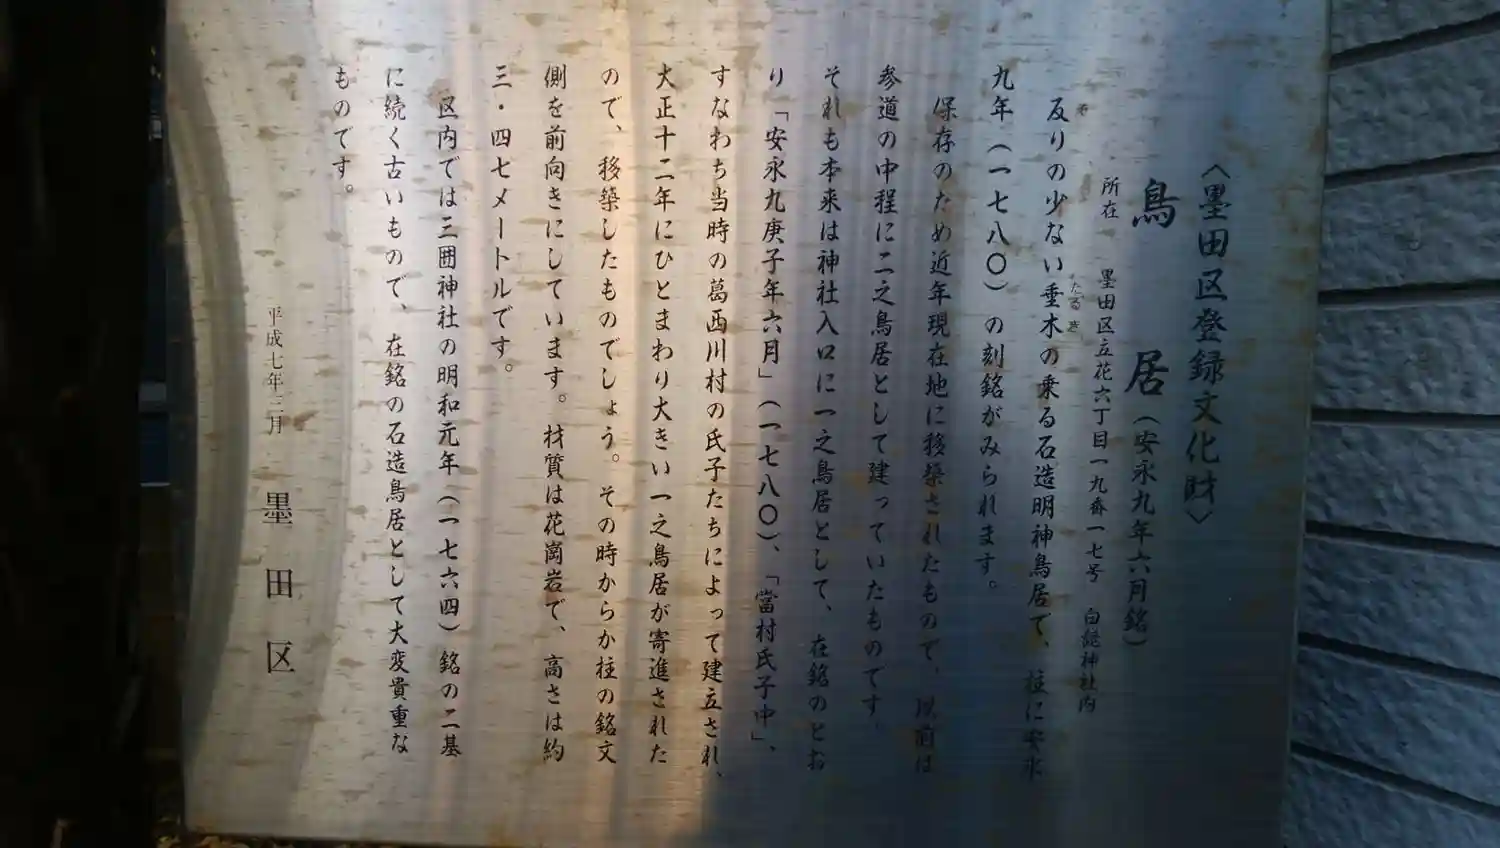 〈墨田区登録文化財〉
鳥居（安永九年六月銘）
所在 墨田区立花六丁目一九番一七号 白髭神社内
反りの少ない垂木の乗る石造明神鳥居で、柱に安永
九年（一七八〇）の刻銘がみられます。
保存のため近年現在地に移築されたもので、以前は
参道の中程に二之鳥居として建っていたものです。
それも本来は神社入口に一之鳥居として、在銘のとお
り「安永九庚子年六月」（一七八〇）、「當村氏子中」、
すなわち当時の葛西川村の氏子たちによって建立され、
大正十二年にひとまわり大きい一之鳥居が寄進された
ので、移築したものでしょう。その時からか柱の銘文
側を前向きにしています。材質は花崗岩で、高さは約
三・四七メートルです。
区内では三囲神社の明和元年（一七六四）銘の二基
に続く古いもので、在銘の石造鳥居として大変貴重な
ものです。
平成七年三月
墨田区